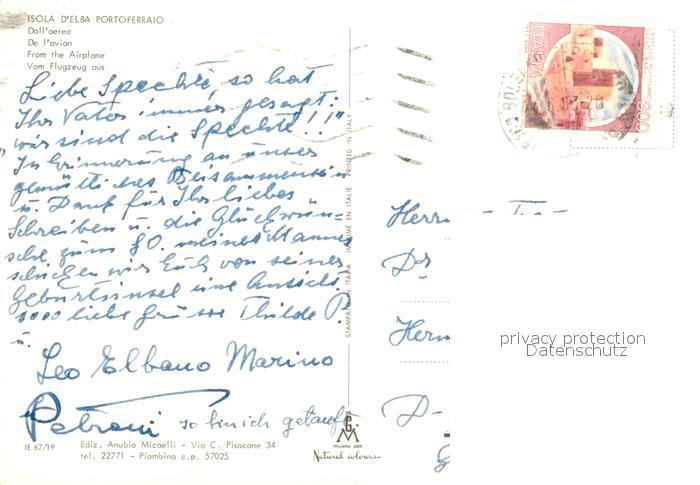 ISOLA D'ELBA PORTOFERRAIO
Dall'aereo
De l'avion
From the Airplane
Vom Flugzeug aus
Liebe Spechte, so hat
Ihr Vater immer gesagt:
wir sind die Spechte!!"
In Erinnerung an unser
gemütliches Beisammensein
u. Dank für Ihr liebes
Schreiben u. die Glückwün-
sche zum 80. meines Mannes
schicken wir Euch von seiner
Geburtsinsel eine Ansicht
1000 liebe Grüsse Thilde P.
u.
Leo Elbano Marino
Petroni so bin ich getauft.
IE 67/19
Ediz. Anubio Micaelli - Via C. Pisacane 34
tel. 22771 - Piombino c.p. 57025
STAMPATO IN ITALIA IMPRIMÉ EN ITALIE PRINTED IN ITALY
MILANO
Natural colours
ITALIA
Herrn
Dr
Herrn
D-
privacy protection
Datenschutz